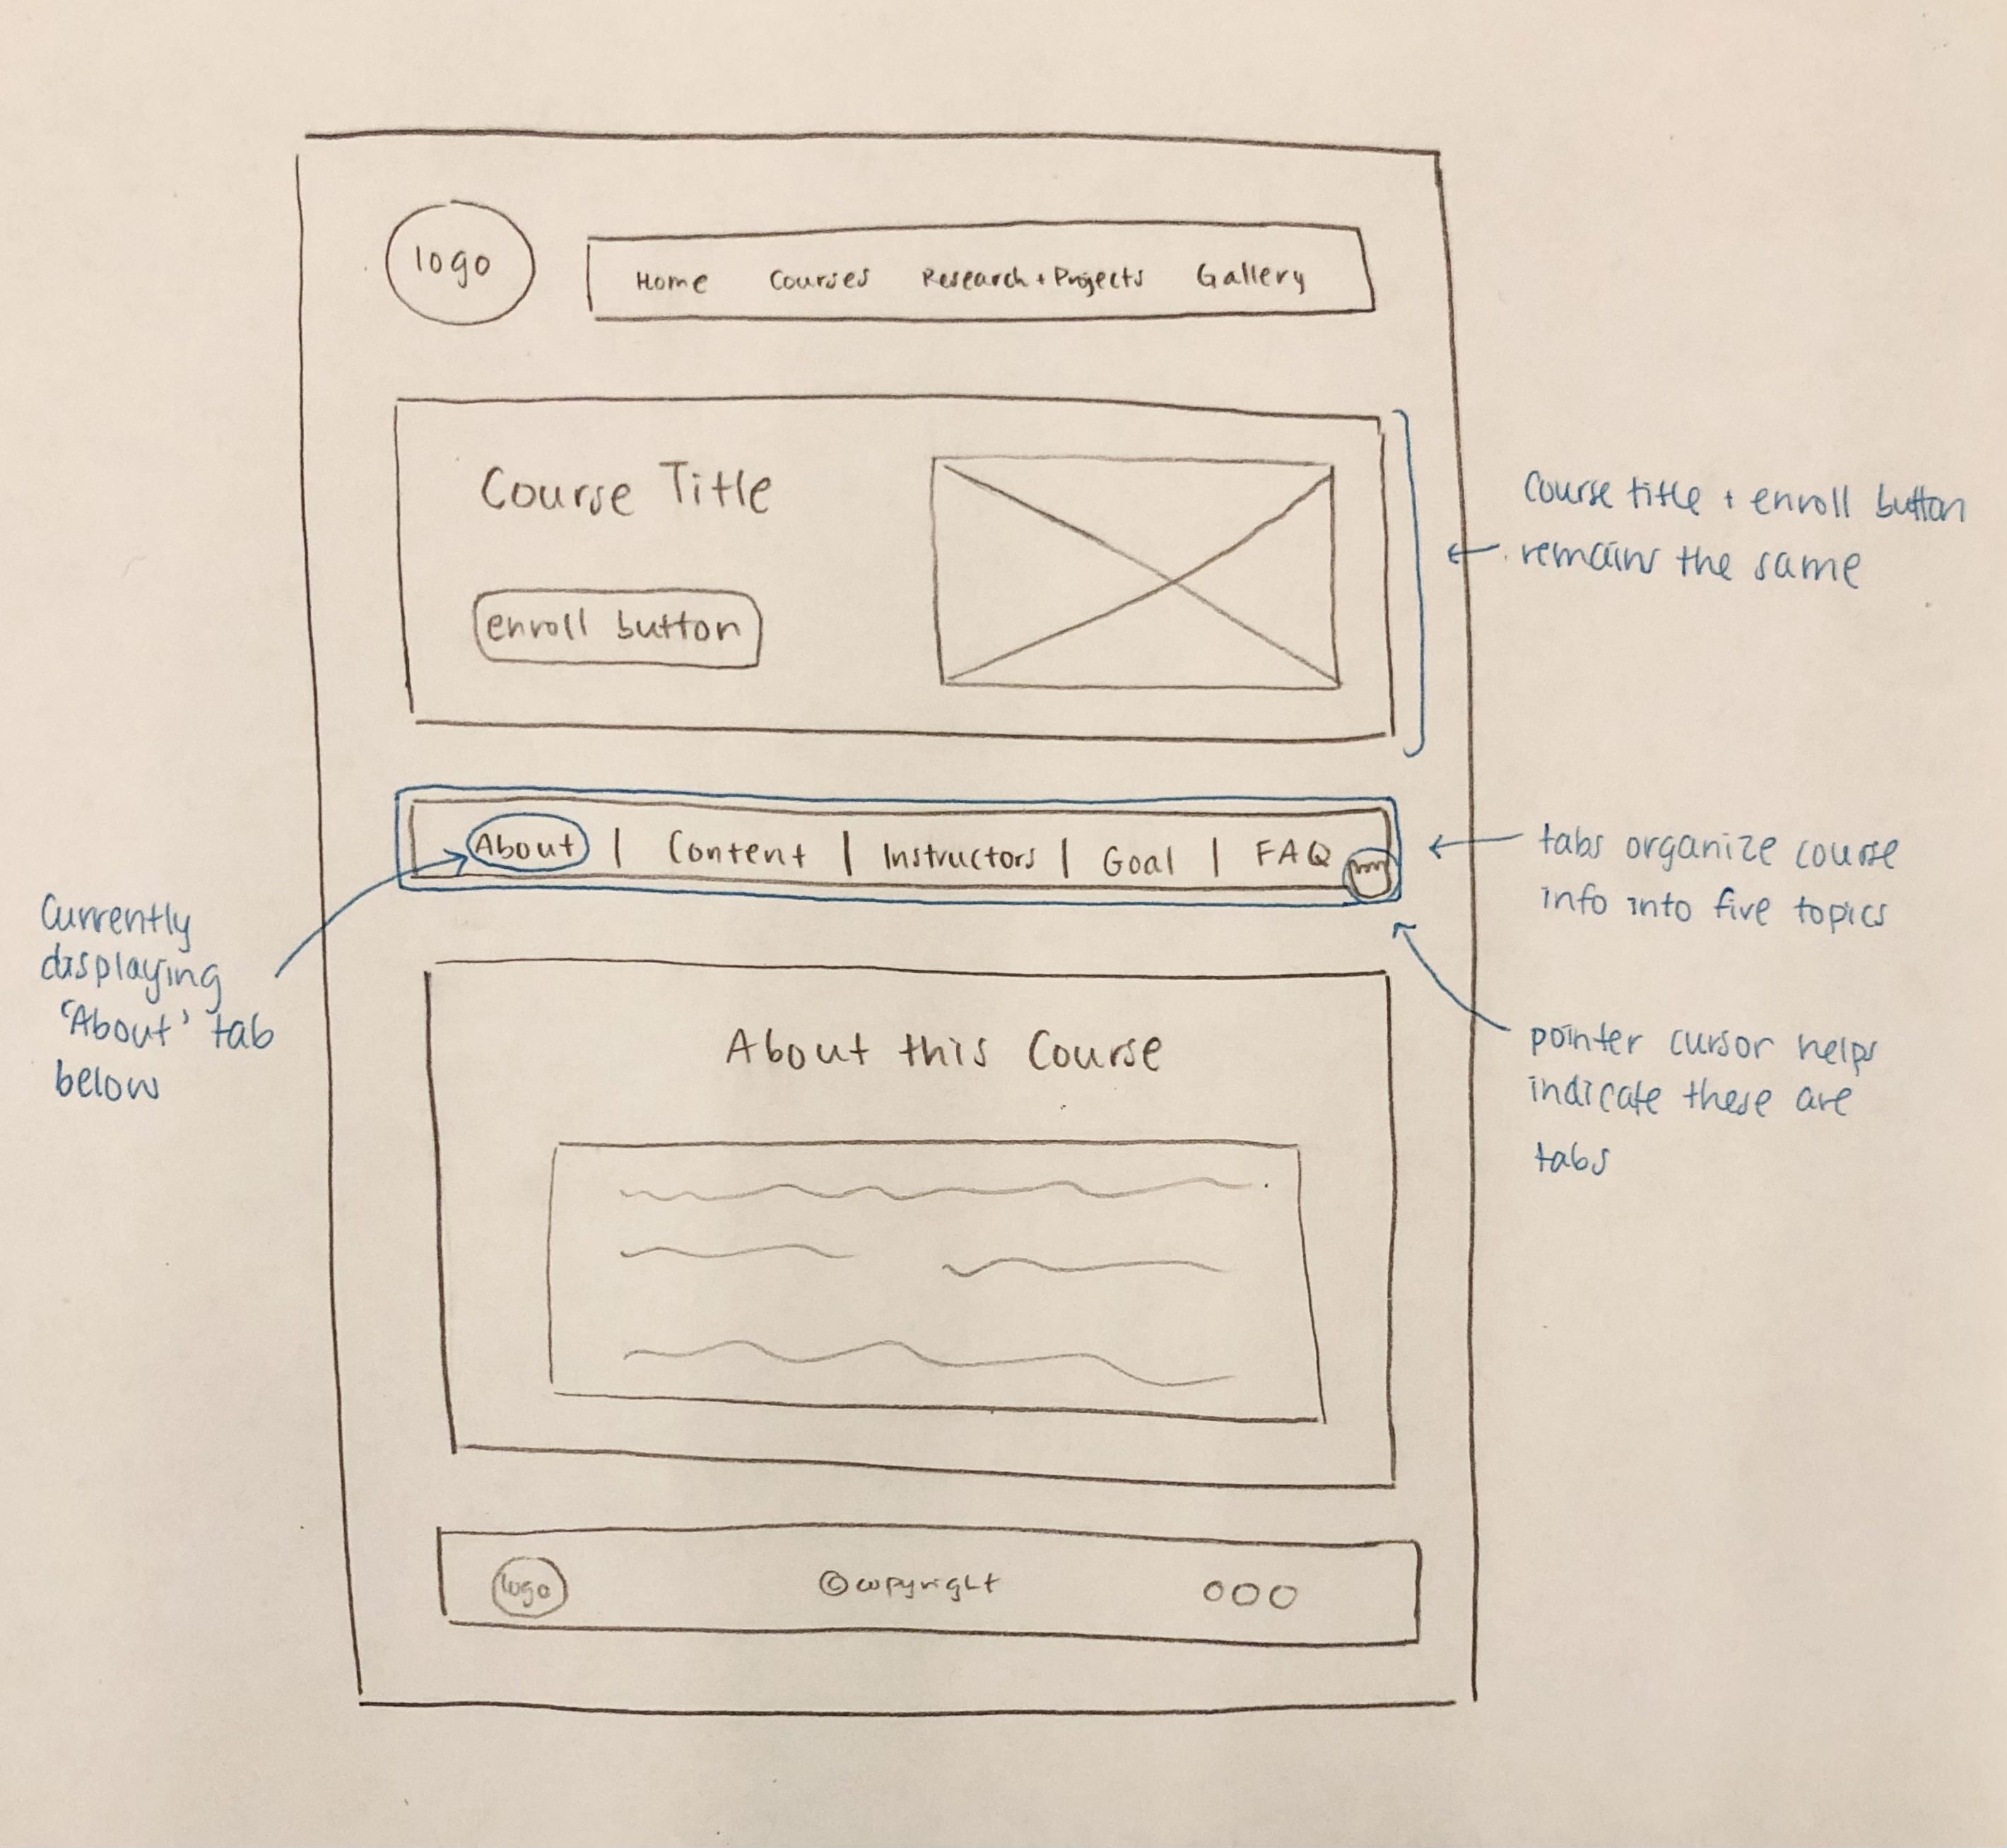 logo
Home Courses Research + Projects Gallery
Course Title
enroll button
Course title + enroll button
remains the same
About | Content | Instructors | Goal | FAQ
tabs organize course
info into five topics
Currently
displaying
'About' tab
below
pointer cursor helps
indicate these are
tabs
About this Course
logo
© copyright